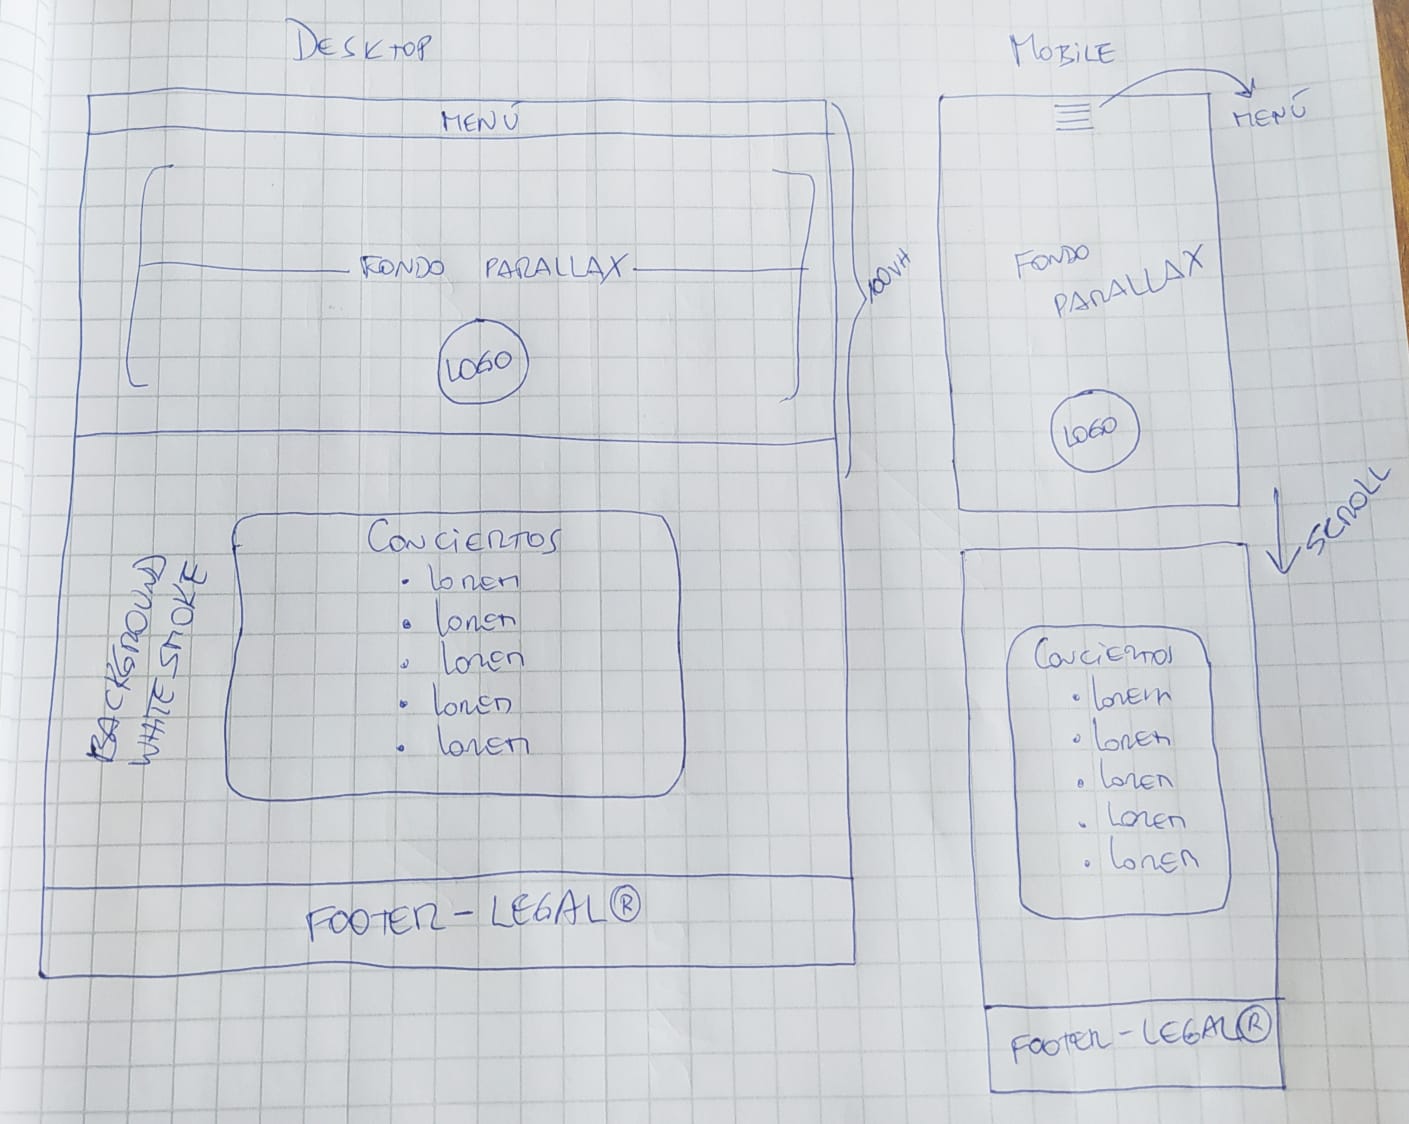 DESKTOP
MENÚ
FONDO PARALLAX
LOGO
100VH
BACKGROUND
WHITE SMOKE
CONCIERTOS
• LOREM
• LOREM
• LOREM
• LOREM
• LOREM
FOOTER - LEGAL ®
MOBILE
MENÚ
FONDO
PARALLAX
LOGO
SCROLL
CONCIERTOS
• LOREM
• LOREM
• LOREM
• LOREM
• LOREM
FOOTER - LEGAL ®